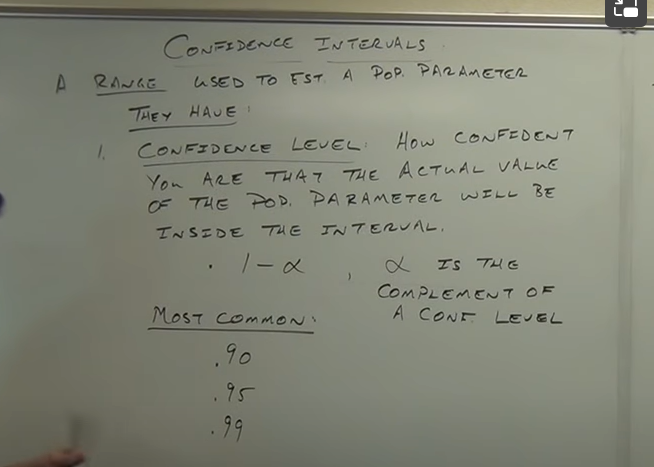 CONFIDENCE INTERVALS
A RANGE USED TO EST A POP. PARAMETER
THEY HAVE:
1. CONFIDENCE LEVEL: HOW CONFIDENT
YOU ARE THAT THE ACTUAL VALUE
OF THE POP. PARAMETER WILL BE
INSIDE THE INTERVAL.
· 1 - α , α IS THE
COMPLEMENT OF
A CONF LEVEL
MOST COMMON:
.90
.95
.99